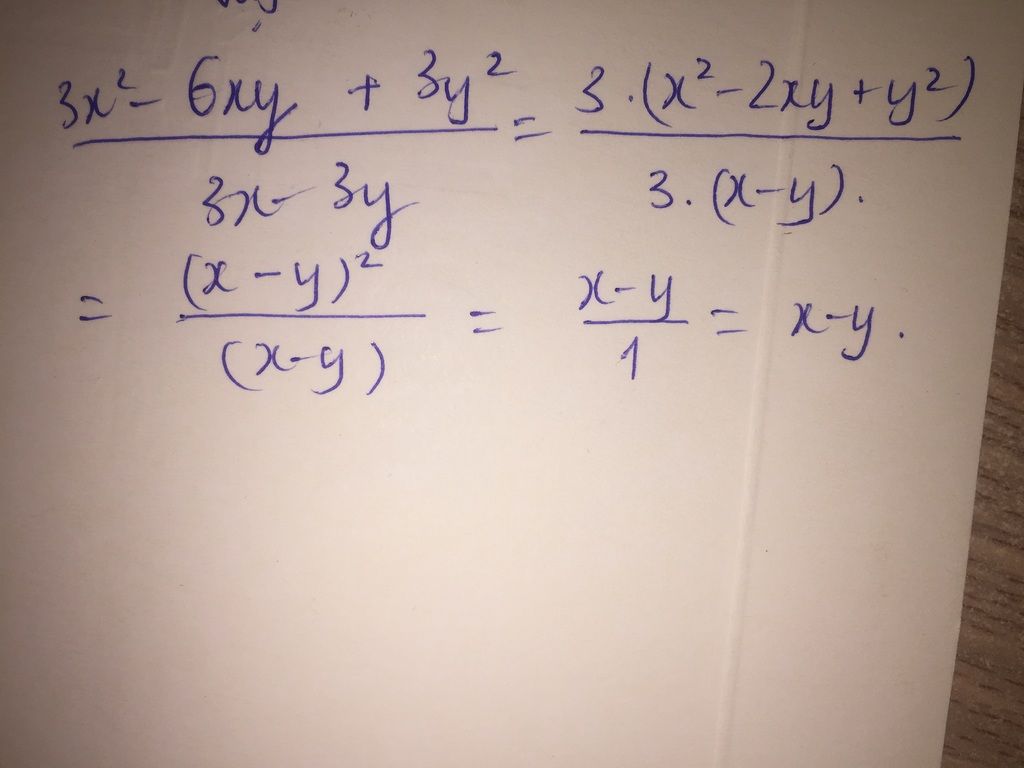 3x² - 6xy + 3y² / 3x - 3y = 3.(x² - 2xy + y²) / 3.(x - y).
= (x - y)² / (x - y) = x - y / 1 = x - y.